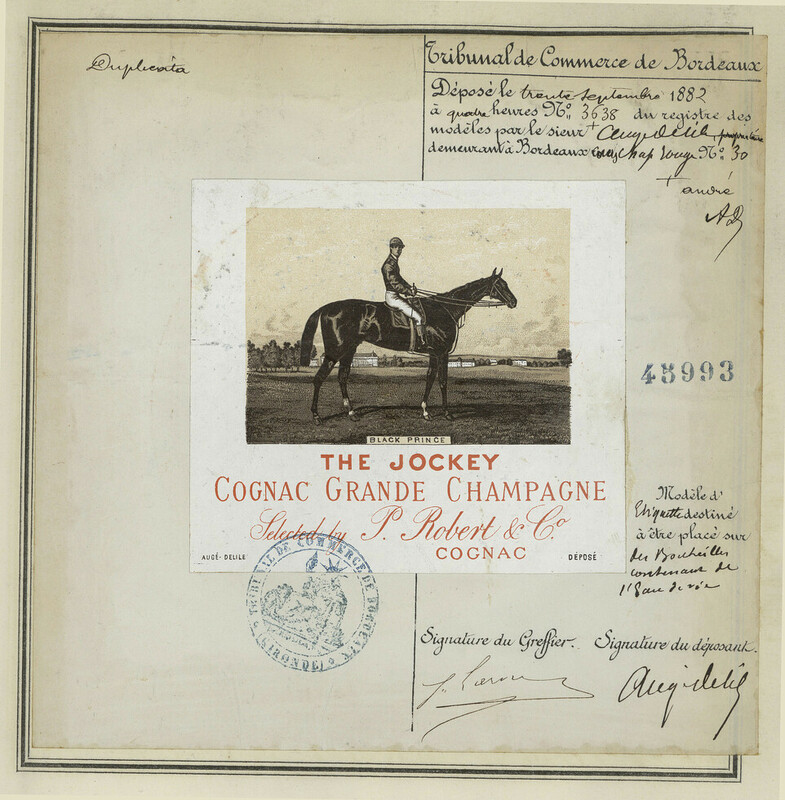 Duplicata
Tribunal de Commerce de Bordeaux
Déposé le trente septembre 1882
à quatre heures No. 3638 du registre des
modèles par le sieur + Augé Delile, propriétaire
demeurant à Bordeaux Chap. rouge No. 30
+ andré
AD
45993
BLACK PRINCE
THE JOCKEY
COGNAC GRANDE CHAMPAGNE
Selected by P. Robert & Co.
COGNAC
AUGÉ-DELILE
DÉPOSÉ
Modèle d'
Etiquette destiné
à être placé sur
des Bouteilles
contenant de
l'Eau de vie
TRIBUNAL DE COMMERCE DE BORDEAUX
(GIRONDE)
Signature du Greffier.
Signature du déposant.
Augé Delile